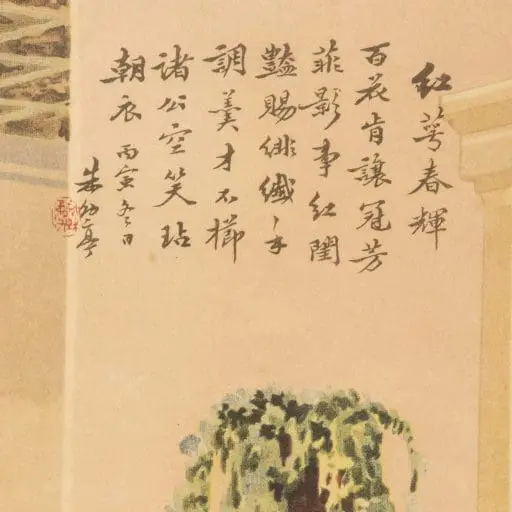 紅萼春輝
百花肯讓冠芳
菲影事紅閨
豔賜緋纖手
調羹才不櫛
諸公空笑玷
朝衣 丙寅冬日
朱幼亭